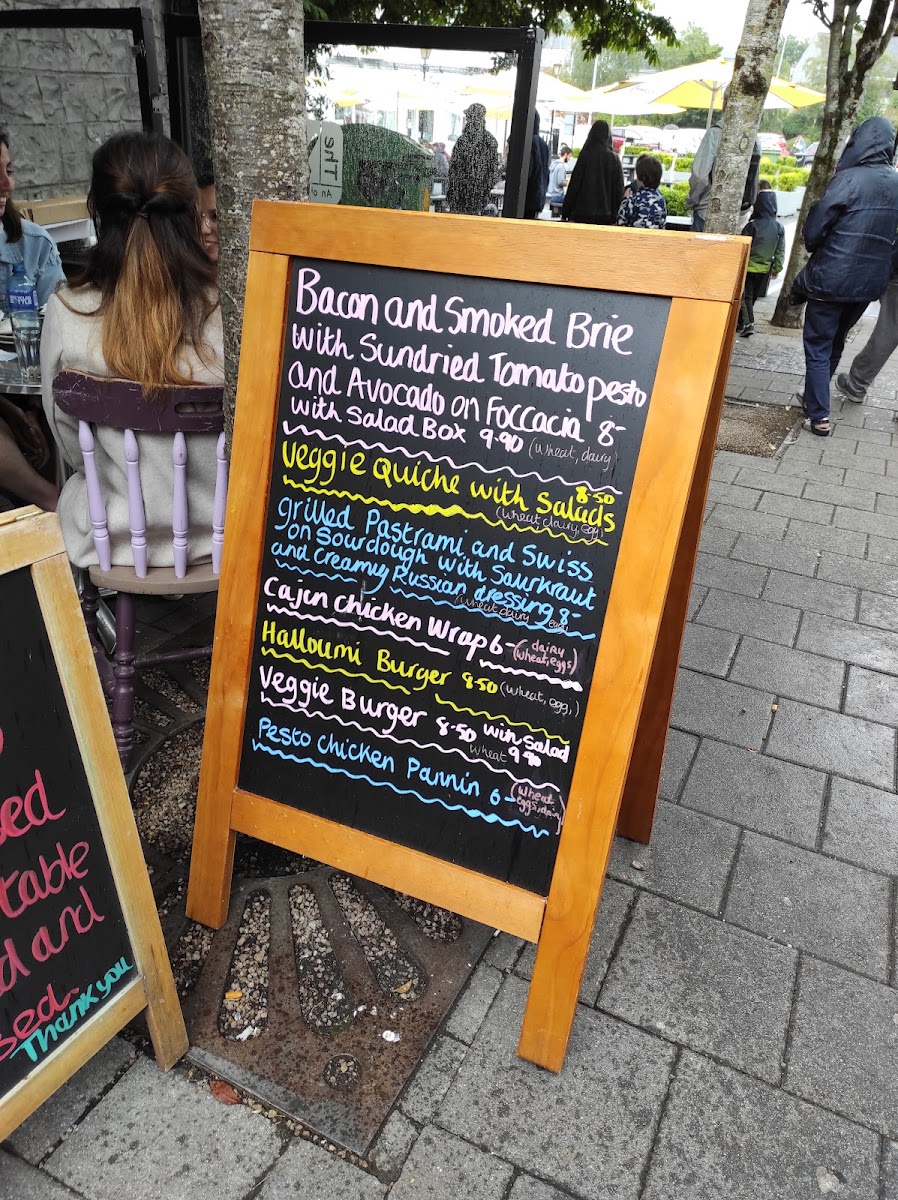 Bacon and Smoked Brie
with Sundried Tomato pesto
and Avocado on Foccacia 8-
with Salad Box 9.90 (wheat, dairy)
Veggie Quiche with Salads 8.50
(wheat, dairy, egg,)
grilled Pastrami and Swiss
on Sourdough with Saurkraut
and Creamy Russian dressing 8-
(wheat dairy
Cajun Chicken Wrap 6- (dairy
wheat, eggs)
Halloumi Burger 8.50 (wheat, egg,)
Veggie Burger 8.50 with Salad
wheat 9.90
Pesto Chicken Pannin 6- (wheat
eggs, dairy)
The
table
and
Thank you